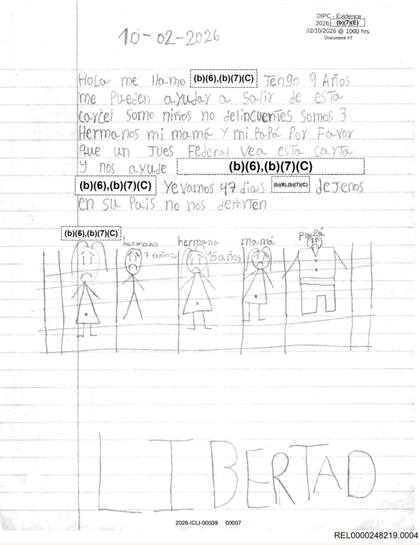 DIPC - Evidence
2026- (b)(7)(E)
02/10/2026 @ 1000 hrs.
Document #7
10-02-2026
HOLa me llamo (b)(6),(b)(7)(C) Tengo 9 Años
me Pueden ayudar a Salir de esta
carcel Somo niños no delincuentes Somos 3
Hermanos mi mamá Y mi PaPá Por Favor
que un Jues Federal Vea esta Carta
Y nos ayude (b)(6),(b)(7)(C)
(b)(6),(b)(7)(C) Yevamos 47 dias (b)(6),(b)(7)(C) dejenos
en su Pais no nos deporten
(b)(6),(b)(7)(C) hermano hermana mamá papá
7 años 15 años
LIBERTAD
2026-ICLI-00039 00007
REL0000248219.0004